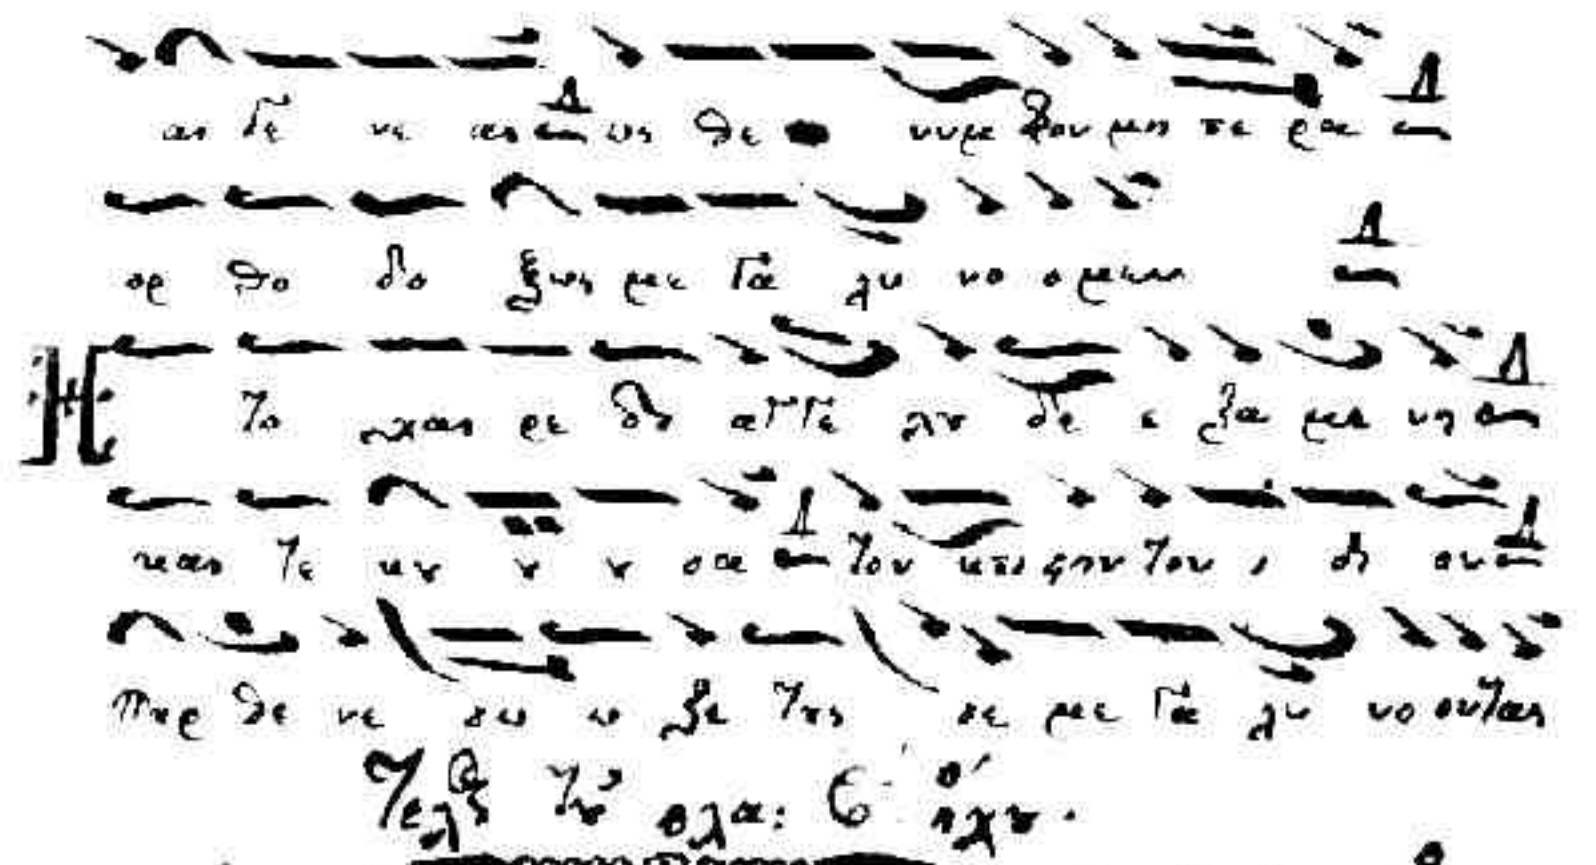 αι δε νε αι ως θε νυμ φον μη τε ρα
ορ θο δο ξως με γα λυ νο ο μεν
το χαι ρε δι αγ γε λου δε ε ξα με νη
και τε κου ου ου σα τον κτι στην τον ι δι ον
παρ θε νε σω ω ζε τας σε με γα λυ νο ουντας
τέλος του πλα: β΄ ήχου.